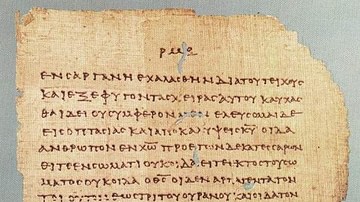 ΕΝ ΣΑΡΓΑΝΗ ΕΧΑΛΑΣΘΗΝ ΔΙΑ ΤΟΥ ΤΕΙΧΟΥΣ
ΚΑΙ ΕΞΕΦΥΓΟΝ ΤΑΣ ΧΕΙΡΑΣ ΑΥΤΟΥ ΚΑΥΧΑΣ
ΘΑΙ ΔΕΙ ΟΥ ΣΥΜΦΕΡΟΝ ΜΕΝ ΕΛΕΥΣΟΜΑΙ ΔΕ
ΕΙΣ ΟΠΤΑΣΙΑΣ ΚΑΙ ΚΥ ΟΙΔΑ
ΑΝΘΡΩΠΟΝ ΕΝ ΧΡΩ ΠΡΟ ΕΤΩΝ ΔΕΚΑΤΕΣΣΑΡΩΝ
ΕΙΤΕ ΕΝ ΣΩΜΑΤΙ ΟΥΚ ΟΙΔΑ ΕΙΤΕ ΕΚΤΟΣ ΤΟΥ ΣΩ
ΜΑΤΟΣ ΟΥΚ ΟΙΔΑ Ο ΘΣ ΟΙΔΕΝ ΑΡΠΑΓΕΝΤΑ ΤΟΝ
ΤΡΙΤΟΥ ΟΥΡΑΝΟΥ ΚΑΙ ΟΙΔΑ ΤΟΝ